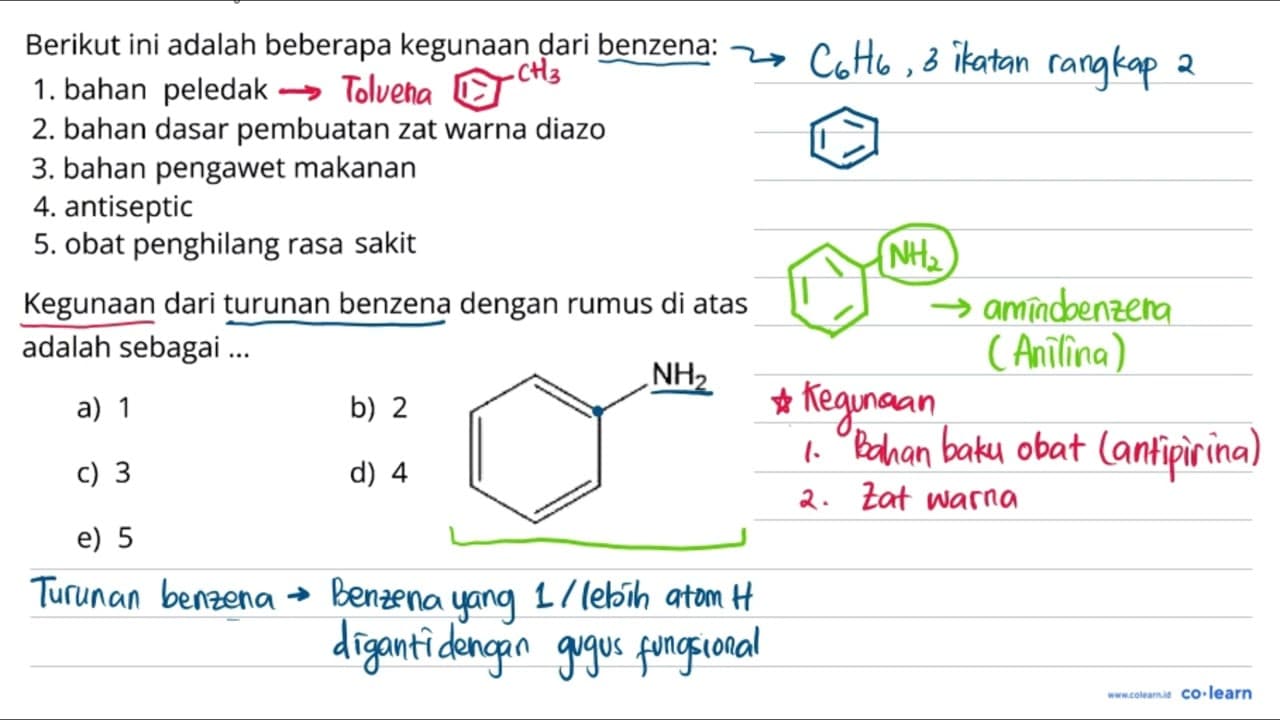 Berikut ini adalah beberapa kegunaan dari benzena: → C6H6, 3 ikatan rangkap 2
1. bahan peledak → Toluena CH3
2. bahan dasar pembuatan zat warna diazo
3. bahan pengawet makanan
4. antiseptic
5. obat penghilang rasa sakit
NH2
→ aminobenzena
(Anilina)
Kegunaan dari turunan benzena dengan rumus di atas
adalah sebagai ...
a) 1
b) 2
c) 3
d) 4
e) 5
NH2
☆ Kegunaan
1. Bahan baku obat (antipirina)
2. Zat warna
Turunan benzena → Benzena yang 1 / lebih atom H
diganti dengan gugus fungsional
www.colearn.id co·learn